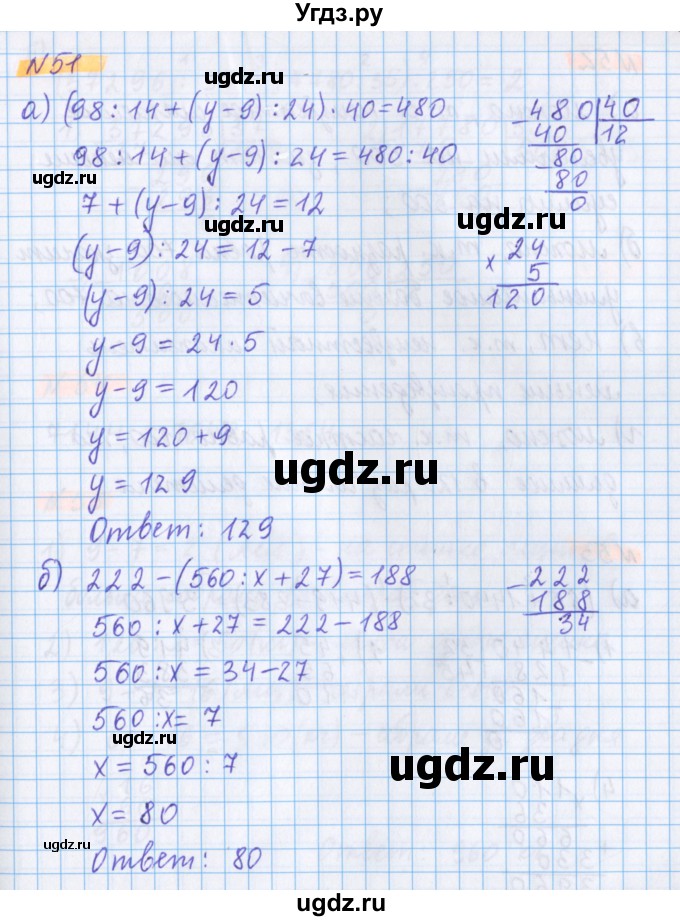 Угдз.ру
№51
ugdz.ru
а) (98:14+(y-9):24)·40=480
480 40
40 12
98:14+(y-9):24=480:40
80
ugdz.ru
80
7+(y-9):24=12
0
ugdz.ru
(y-9):24=12-7
24
× 5
(y-9):24=5
120
y-9=24·5
y-9=120
y=120+9
ugdz.ru
y=129
Ответ: 129
б) 222-(560:x+27)=188
-222
188
560:x+27=222-188
34
560:x=34-27
560:x=7
ugdz.ru
x=560:7
ugdz.ru
x=80
ugdz.ru
Ответ: 80
ugdz.ru